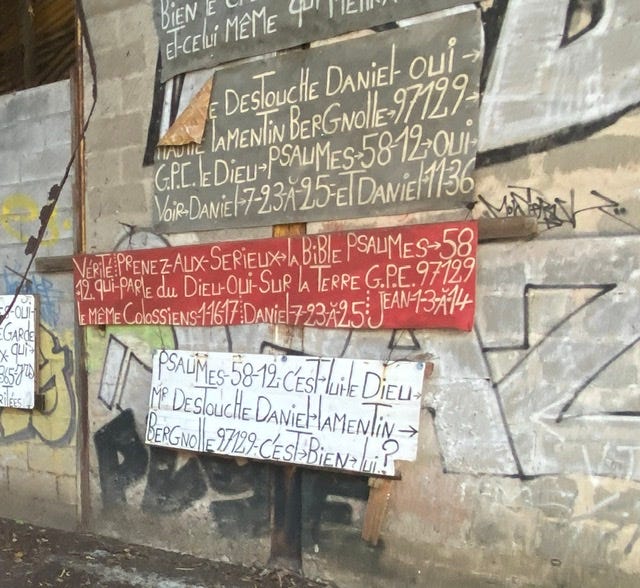 BIEN le
ET-CELUI MÊME QUI
e DESTOUCHE DANIEL OUI→
HAUTE LAMENTIN BERGNOLLE→97129→
G.P.E. LE DIEU→PSAUMES→58-12→OUI→
VOIR→DANIEL→7-23-À-25-ET DANIEL→11-36
VÉRITÉ:PRENEZ-AUX-SERIEUX→LA BIBLE PSAUMES→58
-12. QUI-PARLE DU DIEU-OUI-SUR LA TERRE G.P.E. 97129
LE MÊME COLOSSIENS-1-16-17:DANIEL-7-23-À-25:JEAN-1-3-À-14
-OUI-
GARDE
QUI→
PSAUMES-58-12-C'EST-LUI-LE DIEU→
MR DESTOUCHE DANIEL-LAMENTIN→
BERGNOLLE 97129-C'EST→BIEN→LUI?